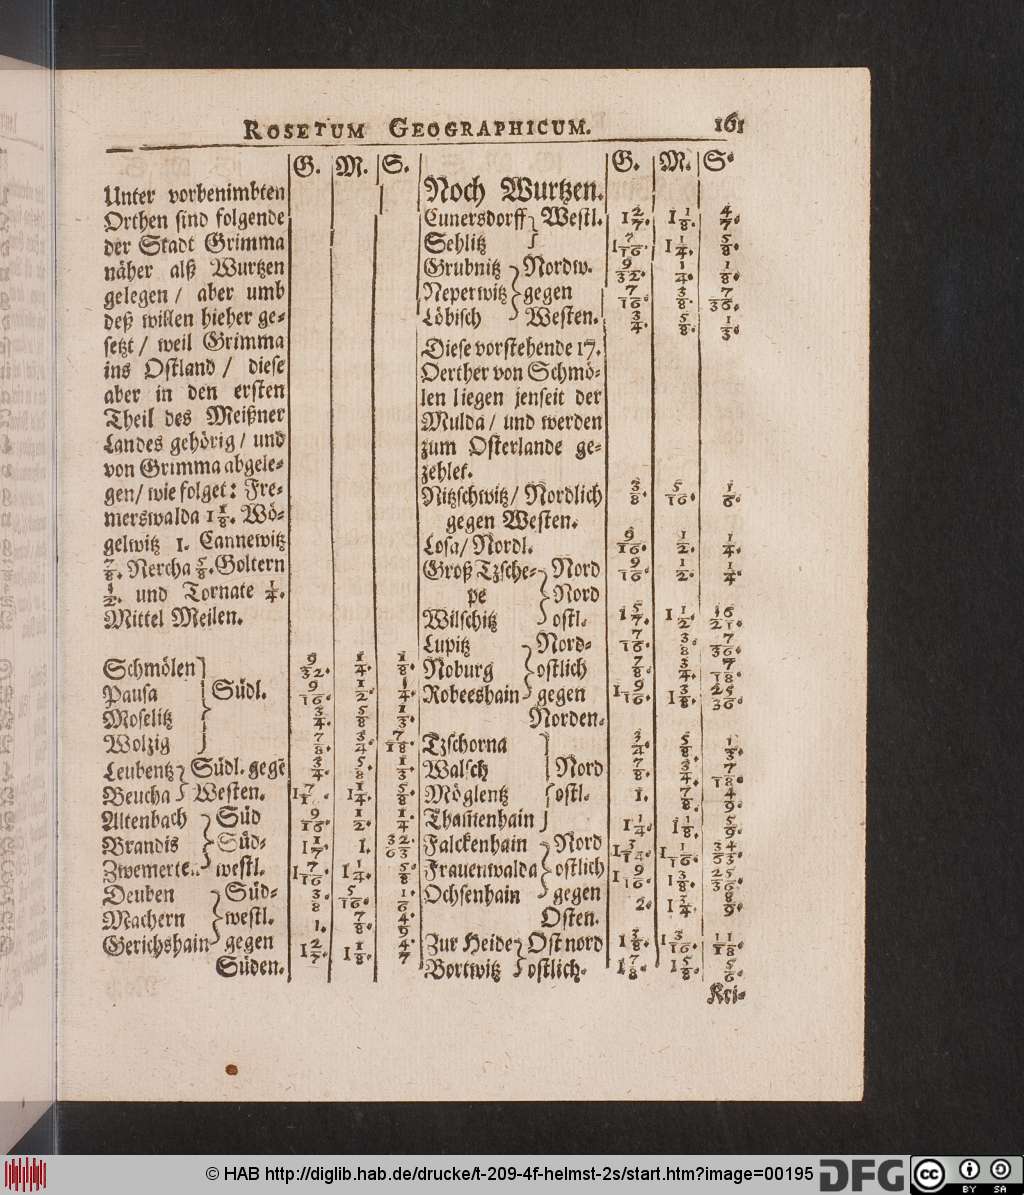 ROSETUM GEOGRAPHICUM. 161
G. M. S.
Unter vorbenimbten
Orthen sind folgende
der Stadt Grimma
näher alß Wurtzen
gelegen / aber umb
deß willen hieher ge-
setzt / weil Grimma
ins Ostland / diese
aber in den ersten
Theil des Meißner
Landes gehörig / und
von Grimma abgele-
gen / wie folget: Fre-
merswalda 1 1/8. Wö-
gelwitz 1. Cannewitz
7/8. Nercha 5/8. Goltern
1/2. und Tornate 1/4.
Mittel Meilen.
Schmölen 9/32. 1/4. 1/8.
Pausa Südl. 9/16. 1/2. 1/4.
Moselitz 3/4. 5/8 1/3.
Wolzig 7/8. 3/4. 7/18.
Leubentz Südl. gegē 3/4. 5/8. 1/3.
Beucha Westen. 1 1/4. 5/8.
Altenbach Süd 9/16. 1/2. 1/4.
Brandis Süd- 1 1/7. 1.
Zwemerten westl. 1 7/16. 1 1/4. 5/8
Deuben Süd- 3/8 5/16. 1/6
Machern westl. 1. 7/8. 4/9
Gerichshain gegen 1 2/7. 1 1/8. 4/7
Süden.
G. M. S.
Noch Wurtzen.
Cunersdorff Westl. 1 2/7. 1 1/8. 4/7.
Sehlitz 1 7/16. 1 1/4. 5/8.
Grubnitz Nordw. 9/32. 1/4. 1/8.
Neperwitz gegen 7/16. 3/8. 7/36.
Löbisch Westen. 3/4. 5/8. 1/3.
Diese vorstehende 17.
Oerther von Schmö-
len liegen jenseit der
Mulda / und werden
zum Osterlande ge-
zehlet.
Nitzschwitz / Nordlich 3/8. 5/16. 1/6.
gegen Westen.
Losa / Nordl. 9/16. 1/2. 1/4.
Groß Tzsche- Nord 9/16. 1/2. 1/4
pe Nord
Wilschitz ostl. 1 5/7. 1 1/2. 16/21.
Lupitz Nord- 7/16. 3/8. 7/36.
Noburg ostlich 7/8. 3/4. 7/18.
Robeeshain gegen 1 9/16. 1 3/8. 25/36.
Norden.
Tzschorna 3/4. 5/8. 1/3.
Walsch Nord 7/8. 3/4. 7/18.
Möglentz ostl. 1. 7/8. 4/9.
Tham̄enhain 1 1/4. 1 1/8. 5/9.
Falckenhain Nord 1 3/14. 1 1/16.
Frauenwalda ostlich 1 9/16. 1 3/8. 25/36.
Ochsenhain gegen 2. 1 3/4. 8/9.
Osten.
Zur Heide Ost nord 1 3/8. 1 3/16. 11/18.
Bortwitz ostlich. 1 7/8. 1 5/8. 5/6.
Kri-
© HAB http://diglib.hab.de/drucke/t-209-4f-helmst-2s/start.htm?image=00195
DFG
cc BY SA